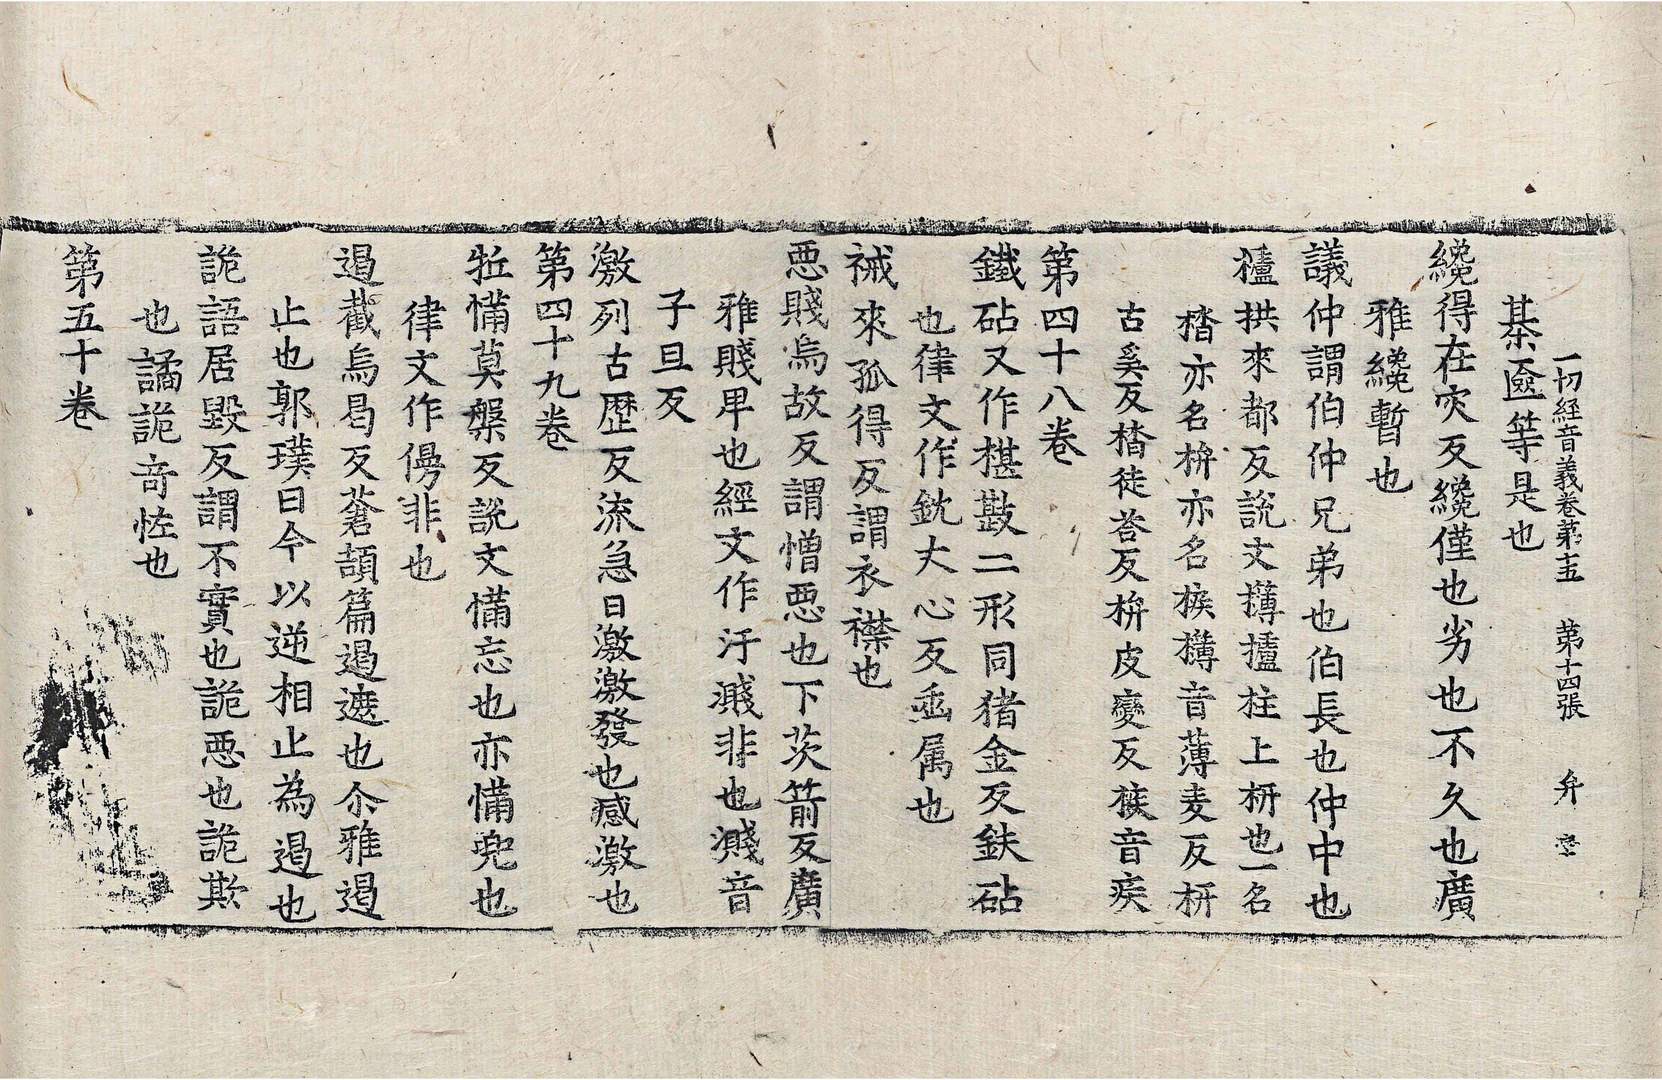 一切経音義卷第十五　第十四張　弁　壹
棊匳等是也
纔得在灾反纔僅也劣也不久也廣
雅纔暫也
議仲謂伯仲仲兄弟也伯長也仲中也
櫨拱來都反說文欂櫨柱上枅也一名
㭼亦名枅亦名㮨欂音薄麦反枅
古奚反㭼徒荅反枅皮變反㮨音疾
第四十八卷
鐵砧又作椹㪛二形同猪金反鈇砧
也律文作鈂丈心反臿属也
祴來孤得反謂衣襟也
惡賤烏故反謂憎惡也下茨箭反廣
雅賤卑也經文作汙濺非也濺音
子旦反
激列古歷反流急曰激激發也感激也
第四十九卷
㸰㒼莫槃反說文㒼忘也亦㒼兜也
律文作㒼非也
遏截烏曷反蒼頡篇遏遮也尒雅遏
止也郭璞曰今以逆相止為遏也
詭語居毀反謂不實也詭惡也詭欺
也譎詭竒恠也
第五十卷